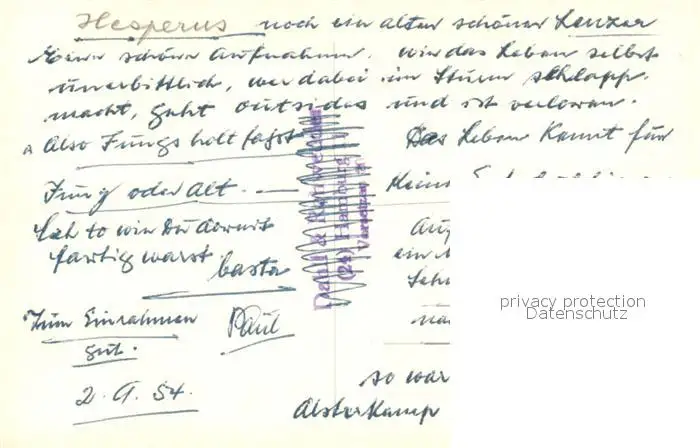 Hesperus noch ein alter schöner Lenzer
Eine schöne Aufnahme. wie das Leben selbst
unerbittlich, wer dabei im Sturm schlapp
macht, geht outsides und ist verloren.
Also Jungs holt fast
Das Leben kennt für
Jung oder Alt.
Keine
seh to wie Du dormit
fartig warst
basta
Zum Einrahmen
gut.
Paul
2. 9. 54.
so war
Alsterkamp
Dahl &
(24) Hamburg
privacy protection
Datenschutz